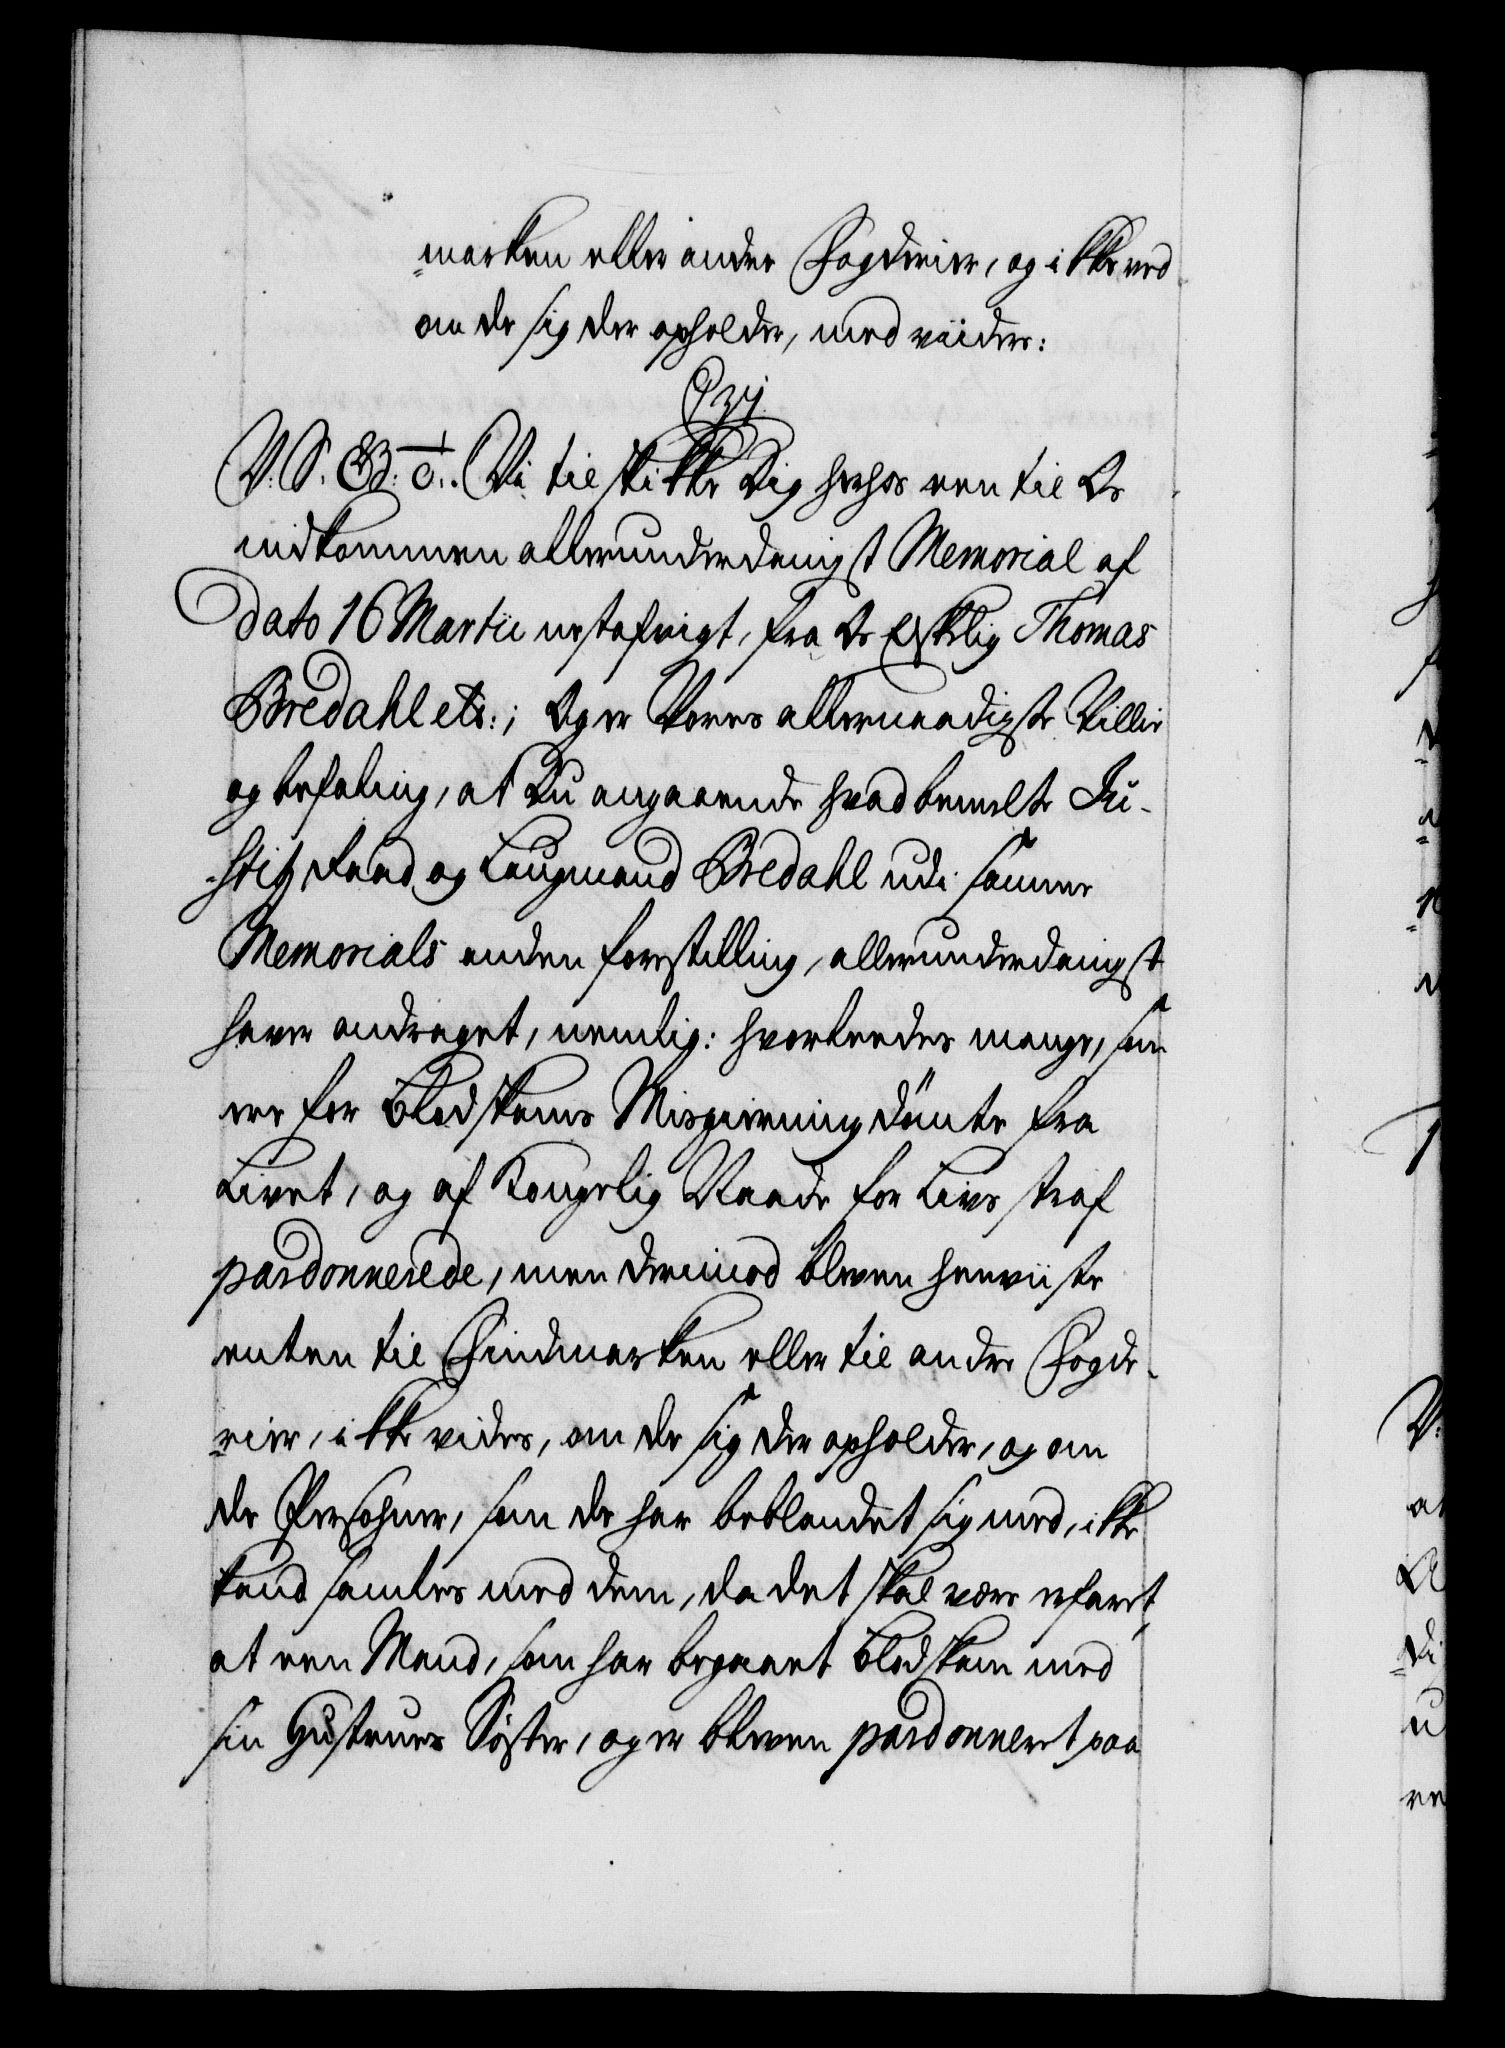 -marken eller andre Fogderier, og ikke ved
om de sig der opholder, med viidere:
C 6.
V. S. G. T. Vi tilskikke Dig herhos een til Os
indkommen allerunderdanigst Memorial af
dato 16 Martii nestafvigt, fra Os Elskelig Thomas
Bredahl etc:; Og er Vores allernaadigste Villie
og befaling, at Du angaaende hvad bemelte Ju-
-stitz Raad og Laugmand Bredahl udi samme
Memorials anden forestilling, allerunderdanigst
haver andraget, nemlig: hvorledes mange, som
ere for Blodskams Misgierning dømte fra
Livet, og af Kongelig Naade for Livs straf
pardonnerede, men derimod bleven henviiste
enten til Findmarken eller til andre Fogde-
-rier, ikke vides, om de sig der opholder, og om
de Persohner, som de har beblandet sig med, ikke
kand samles med dem, da det skal være erfaret,
at een Mand, som har begaaet Blodskam med
sin Hustrues Søster, og er bleven pardonneret paa